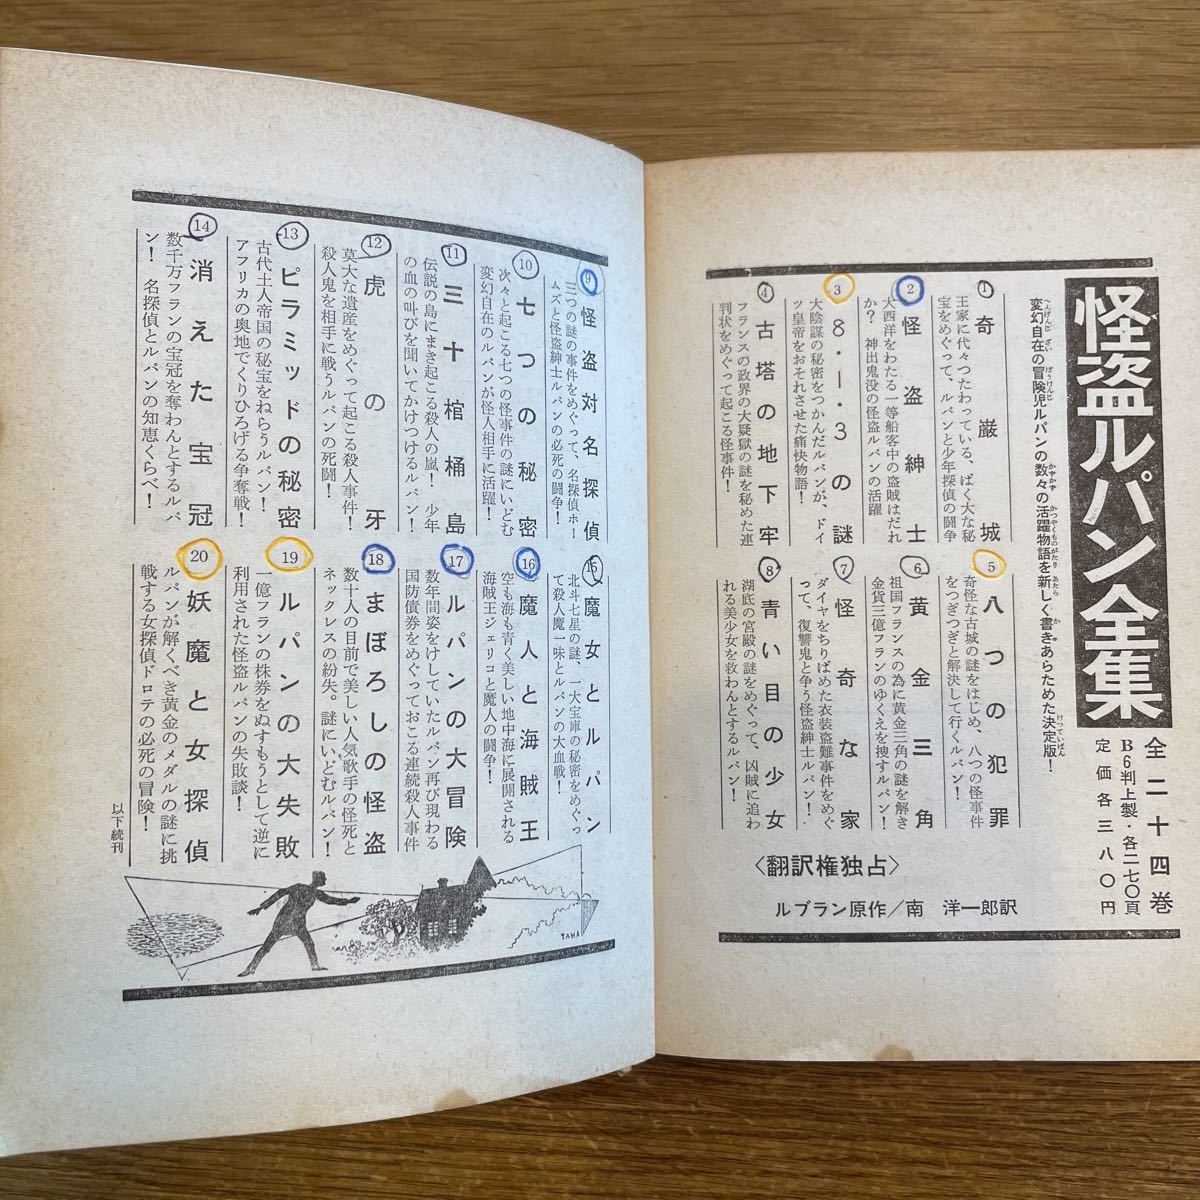 怪盗ルパン全集
変幻自在の冒険児ルパンの数々の活躍物語を新しく書きあらためた決定版！
全二十四巻
B6判上製・各二七〇頁
定価各三八〇円
1 奇巌城
王家に代々つたわっている、ばく大な秘
宝をめぐって、ルパンと少年探偵の闘争
2 怪盗紳士
大西洋をわたる一等船客中の盗賊はだれ
か？　神出鬼没の怪盗ルパンの活躍
3 8・1・3の謎
大陰謀の秘密をつかんだルパンが、ドイ
ツ皇帝をおそれさせた痛快物語！
4 古塔の地下牢
フランスの政界の大疑獄の謎を秘めた連
判状をめぐって起こる怪事件！
5 八つの犯罪
奇怪な古城の謎をはじめ、八つの怪事件
をつぎつぎと解決して行くルパン！
6 黄金三角
祖国フランスの為に黄金三角の謎を解き
金貨三億フランのゆくえを捜すルパン！
7 怪奇な家
ダイヤをちりばめた衣装盗難事件をめぐ
って、復讐鬼と争う怪盗紳士ルパン！
8 青い目の少女
湖底の宮殿の謎をめぐって、凶賊に追わ
れる美少女を救わんとするルパン！
〈翻訳権独占〉
ルブラン原作／南　洋一郎訳
9 怪盗対名探偵
三つの謎の事件をめぐって、名探偵ホー
ムズと怪盗紳士ルパンの必死の闘争！
10 七つの秘密
次々と起こる七つの怪事件の謎にいどむ
変幻自在のルパンが怪人相手に活躍！
11 三十棺桶島
伝説の島にまき起こる殺人の嵐！　少年
の血の叫びを聞いてかけつけるルパン！
12 虎の牙
莫大な遺産をめぐって起こる殺人事件！
殺人鬼を相手に戦うルパンの死闘！
13 ピラミッドの秘密
古代土人帝国の秘宝をねらうルパン！
アフリカの奥地でくりひろげる争奪戦！
14 消えた宝冠
数千万フランの宝冠を奪わんとするルパ
ン！　名探偵とルパンの知恵くらべ！
15 魔女とルパン
北斗七星の謎、一大宝庫の秘密をめぐっ
て殺人魔一味とルパンの大血戦！
16 魔人と海賊王
空も海も青く美しい地中海に展開される
海賊王ジェリコと魔人の闘争！
17 ルパンの大冒険
数年間姿をけしていたルパン再び現わる
国防債券をめぐっておこる連続殺人事件
18 まぼろしの怪盗
数十人の目前で美しい人気歌手の怪死と
ネックレスの紛失。謎にいどむルパン！
19 ルパンの大失敗
一億フランの株券をぬすもうとして逆に
利用された怪盗ルパンの失敗談！
20 妖魔と女探偵
ルパンが解くべき黄金のメダルの謎に挑
戦する女探偵ドロテの必死の冒険！
以下続刊
TAHA